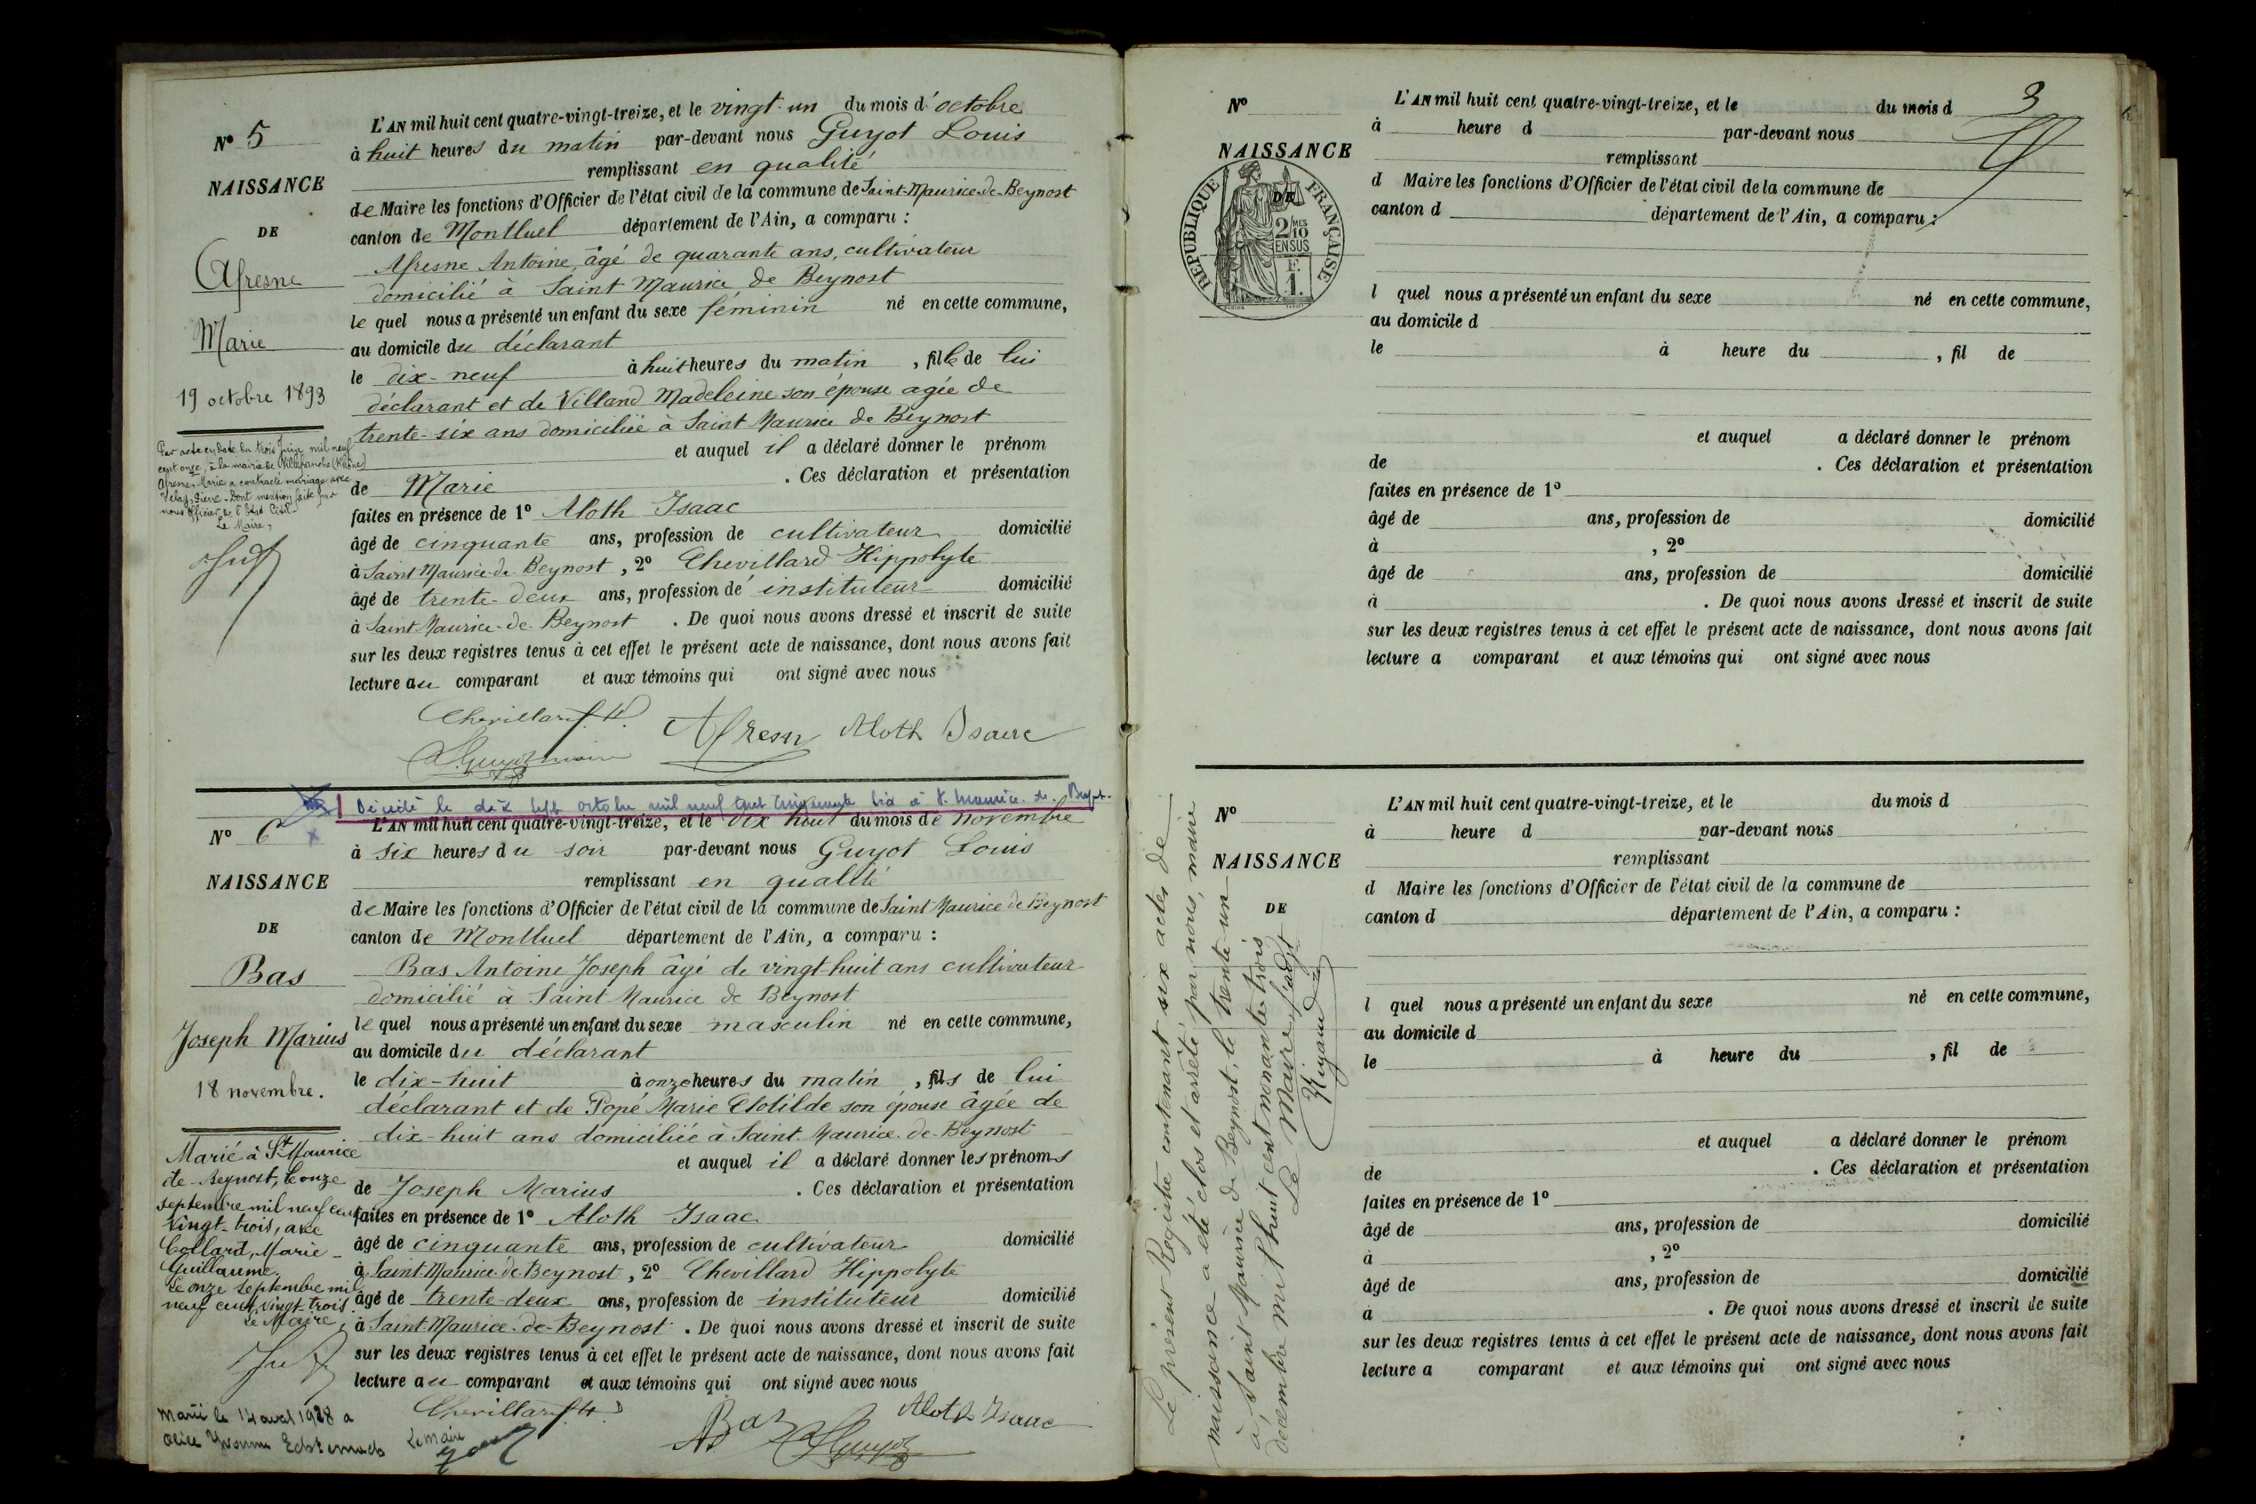 N° 5
NAISSANCE
DE
Afresne
Marie
19 octobre 1893
Par acte en date du trois Juin mil neuf
cent onze, à la mairie de Villefranche (Rhône)
Afresne Marie a contracté mariage avec
Dont mention faite par
nous Officier de l'Etat Civil.
Le Maire,
L'AN mil huit cent quatre-vingt-treize, et le vingt-un du mois d'octobre
à huit heures du matin par-devant nous Guyot Louis
remplissant en qualité
de Maire les fonctions d'Officier de l'état civil de la commune de Saint-Maurice-de-Beynost
canton de Montluel département de l'Ain, a comparu :
Afresne Antoine, âgé de quarante ans, cultivateur
domicilié à Saint Maurice de Beynost
le quel nous a présenté un enfant du sexe féminin né en cette commune,
au domicile du déclarant
le dix-neuf à huit heures du matin , fille de lui
déclarant et de Villand Madeleine son épouse agée de
trente-six ans domiciliée à Saint Maurice de Beynost
et auquel il a déclaré donner le prénom
de Marie . Ces déclaration et présentation
faites en présence de 1° Aloth Isaac
âgé de cinquante ans, profession de cultivateur domicilié
à Saint Maurice de Beynost , 2° Chevillard Hippolyte
âgé de trente-deux ans, profession de instituteur domicilié
à Saint-Maurice-de-Beynost . De quoi nous avons dressé et inscrit de suite
sur les deux registres tenus à cet effet le présent acte de naissance, dont nous avons fait
lecture au comparant et aux témoins qui ont signé avec nous
Chevillard H.
Afresne Aloth Isaac
L. Guyot maire
Décédé le dix sept octobre mil neuf cent cinquante six à St Maurice de Beynost.
N° 6
NAISSANCE
DE
Bas
Joseph Marius
18 novembre.
Marié à St Maurice
de Beynost, le onze
septembre mil neuf cent
vingt-trois, avec
Collard, Marie-
Guillaume.
Le onze Septembre mil
neuf cent vingt-trois.
Le Maire,
Marié le 14 avril 1928 à
Alice Yvonne
Le Maire
L'AN mil huit cent quatre-vingt-treize, et le dix huit du mois de novembre
à six heures du soir par-devant nous Guyot Louis
remplissant en qualité
de Maire les fonctions d'Officier de l'état civil de la commune de Saint Maurice de Beynost
canton de Montluel département de l'Ain, a comparu :
Bas Antoine Joseph âgé de vingt-huit ans cultivateur
domicilié à Saint Maurice de Beynost
le quel nous a présenté un enfant du sexe masculin né en cette commune,
au domicile du déclarant
le dix-huit à onze heures du matin , fils de lui
déclarant et de Popé Marie Clotilde son épouse âgée de
dix-huit ans domiciliée à Saint-Maurice-de-Beynost
et auquel il a déclaré donner les prénoms
de Joseph Marius . Ces déclaration et présentation
faites en présence de 1° Aloth Isaac
âgé de cinquante ans, profession de cultivateur domicilié
à Saint Maurice de Beynost , 2° Chevillard Hippolyte
âgé de trente-deux ans, profession de instituteur domicilié
à Saint-Maurice-de-Beynost . De quoi nous avons dressé et inscrit de suite
sur les deux registres tenus à cet effet le présent acte de naissance, dont nous avons fait
lecture au comparant et aux témoins qui ont signé avec nous
Chevillard H.
Bas L Guyot Aloth Isaac
3
N°
NAISSANCE
DE
RÉPUBLIQUE FRANÇAISE
2/10 MES
EN SUS
F.
1.
L'AN mil huit cent quatre-vingt-treize, et le du mois d
à heure d par-devant nous
remplissant
d Maire les fonctions d'Officier de l'état civil de la commune de
canton d département de l'Ain, a comparu :
l quel nous a présenté un enfant du sexe né en cette commune,
au domicile d
le à heure du , fil de
et auquel a déclaré donner le prénom
de . Ces déclaration et présentation
faites en présence de 1°
âgé de ans, profession de domicilié
à , 2°
âgé de ans, profession de domicilié
à . De quoi nous avons dressé et inscrit de suite
sur les deux registres tenus à cet effet le présent acte de naissance, dont nous avons fait
lecture a comparant et aux témoins qui ont signé avec nous
N°
NAISSANCE
DE
Le présent Registre contenant six actes de
naissance a été clos et arrêté par nous, maire
à Saint Maurice de Beynost, le trente-un
décembre mil huit cent nonante-trois
Le Maire, l'adjt
L'AN mil huit cent quatre-vingt-treize, et le du mois d
à heure d par-devant nous
remplissant
d Maire les fonctions d'Officier de l'état civil de la commune de
canton d département de l'Ain, a comparu :
l quel nous a présenté un enfant du sexe né en cette commune,
au domicile d
le à heure du , fil de
et auquel a déclaré donner le prénom
de . Ces déclaration et présentation
faites en présence de 1°
âgé de ans, profession de domicilié
à , 2°
âgé de ans, profession de domicilié
à . De quoi nous avons dressé et inscrit de suite
sur les deux registres tenus à cet effet le présent acte de naissance, dont nous avons fait
lecture a comparant et aux témoins qui ont signé avec nous